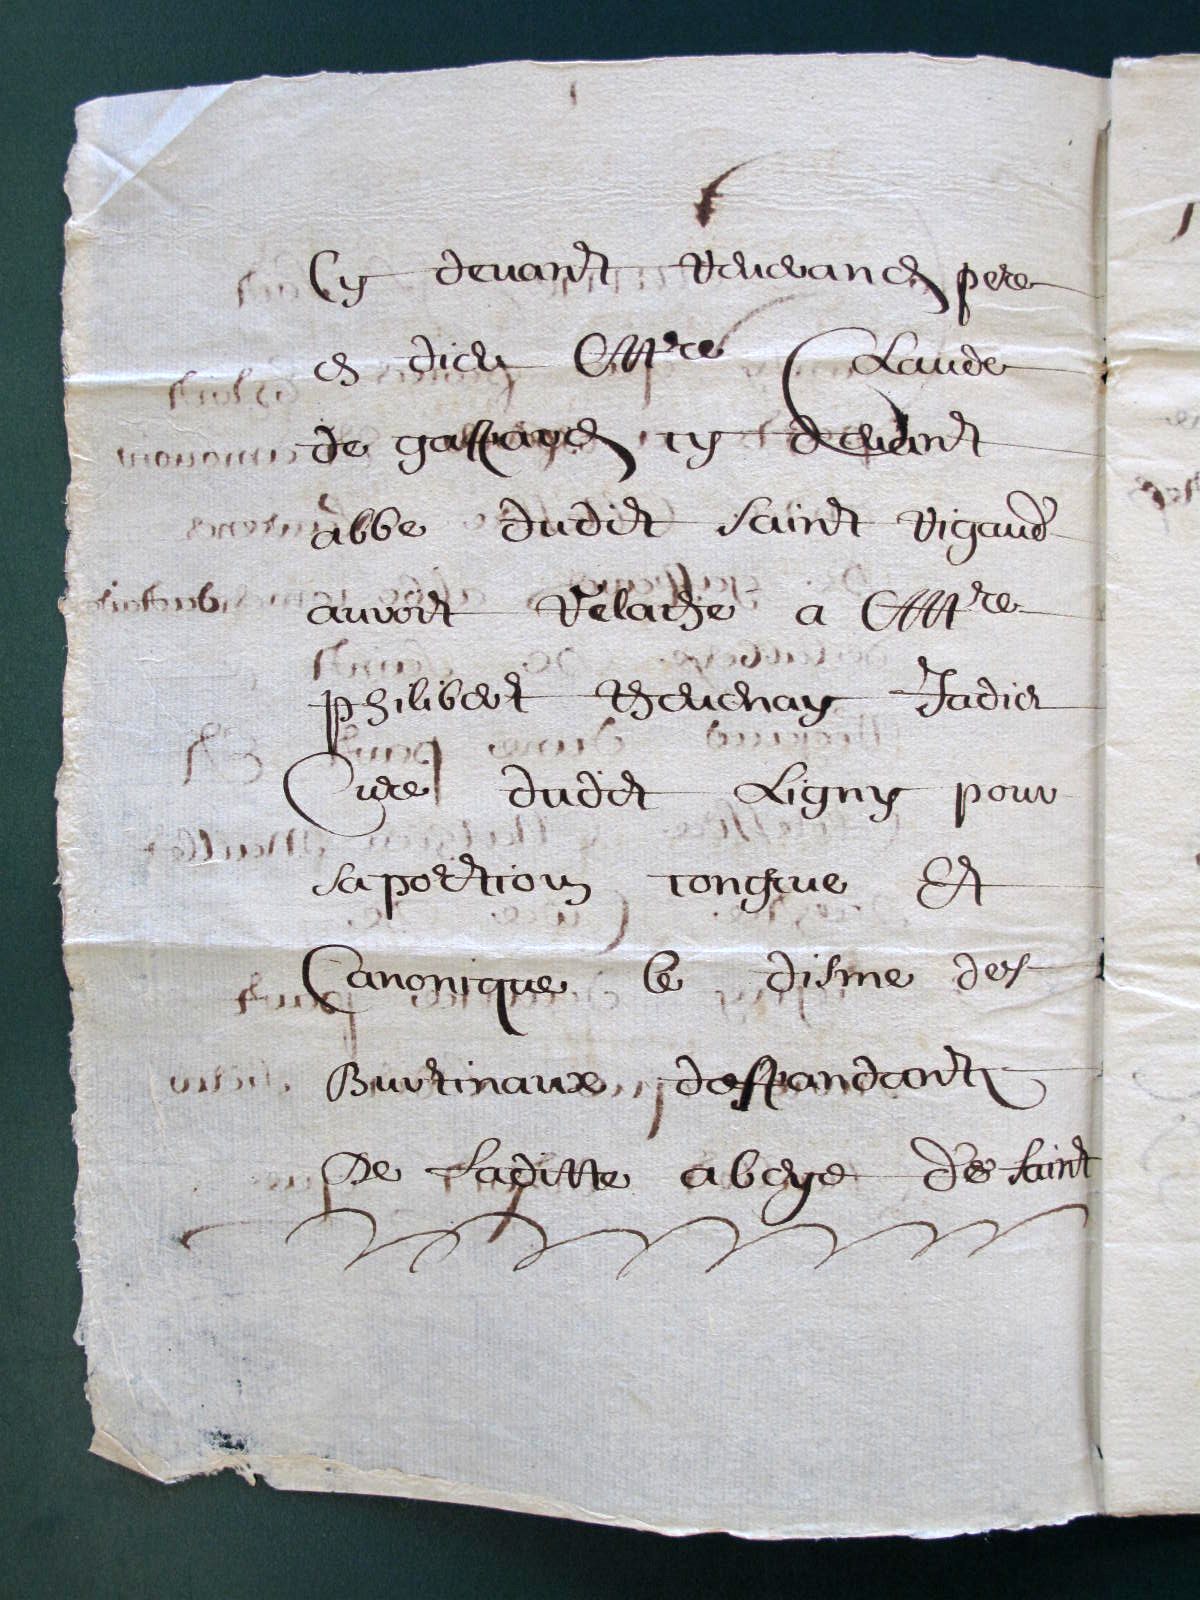 Cy devant Reverand pere
en dieu Mre Claude
de gassand cy devant
abbe dudit saint Rigaud
auvoit relache a Mre
philibert Thevenay Jadict
Cure dudit Ligny pour
sa portion congrue Et
Canonique le disme des
Burtinaux despandant
De Laditte abeye de saint